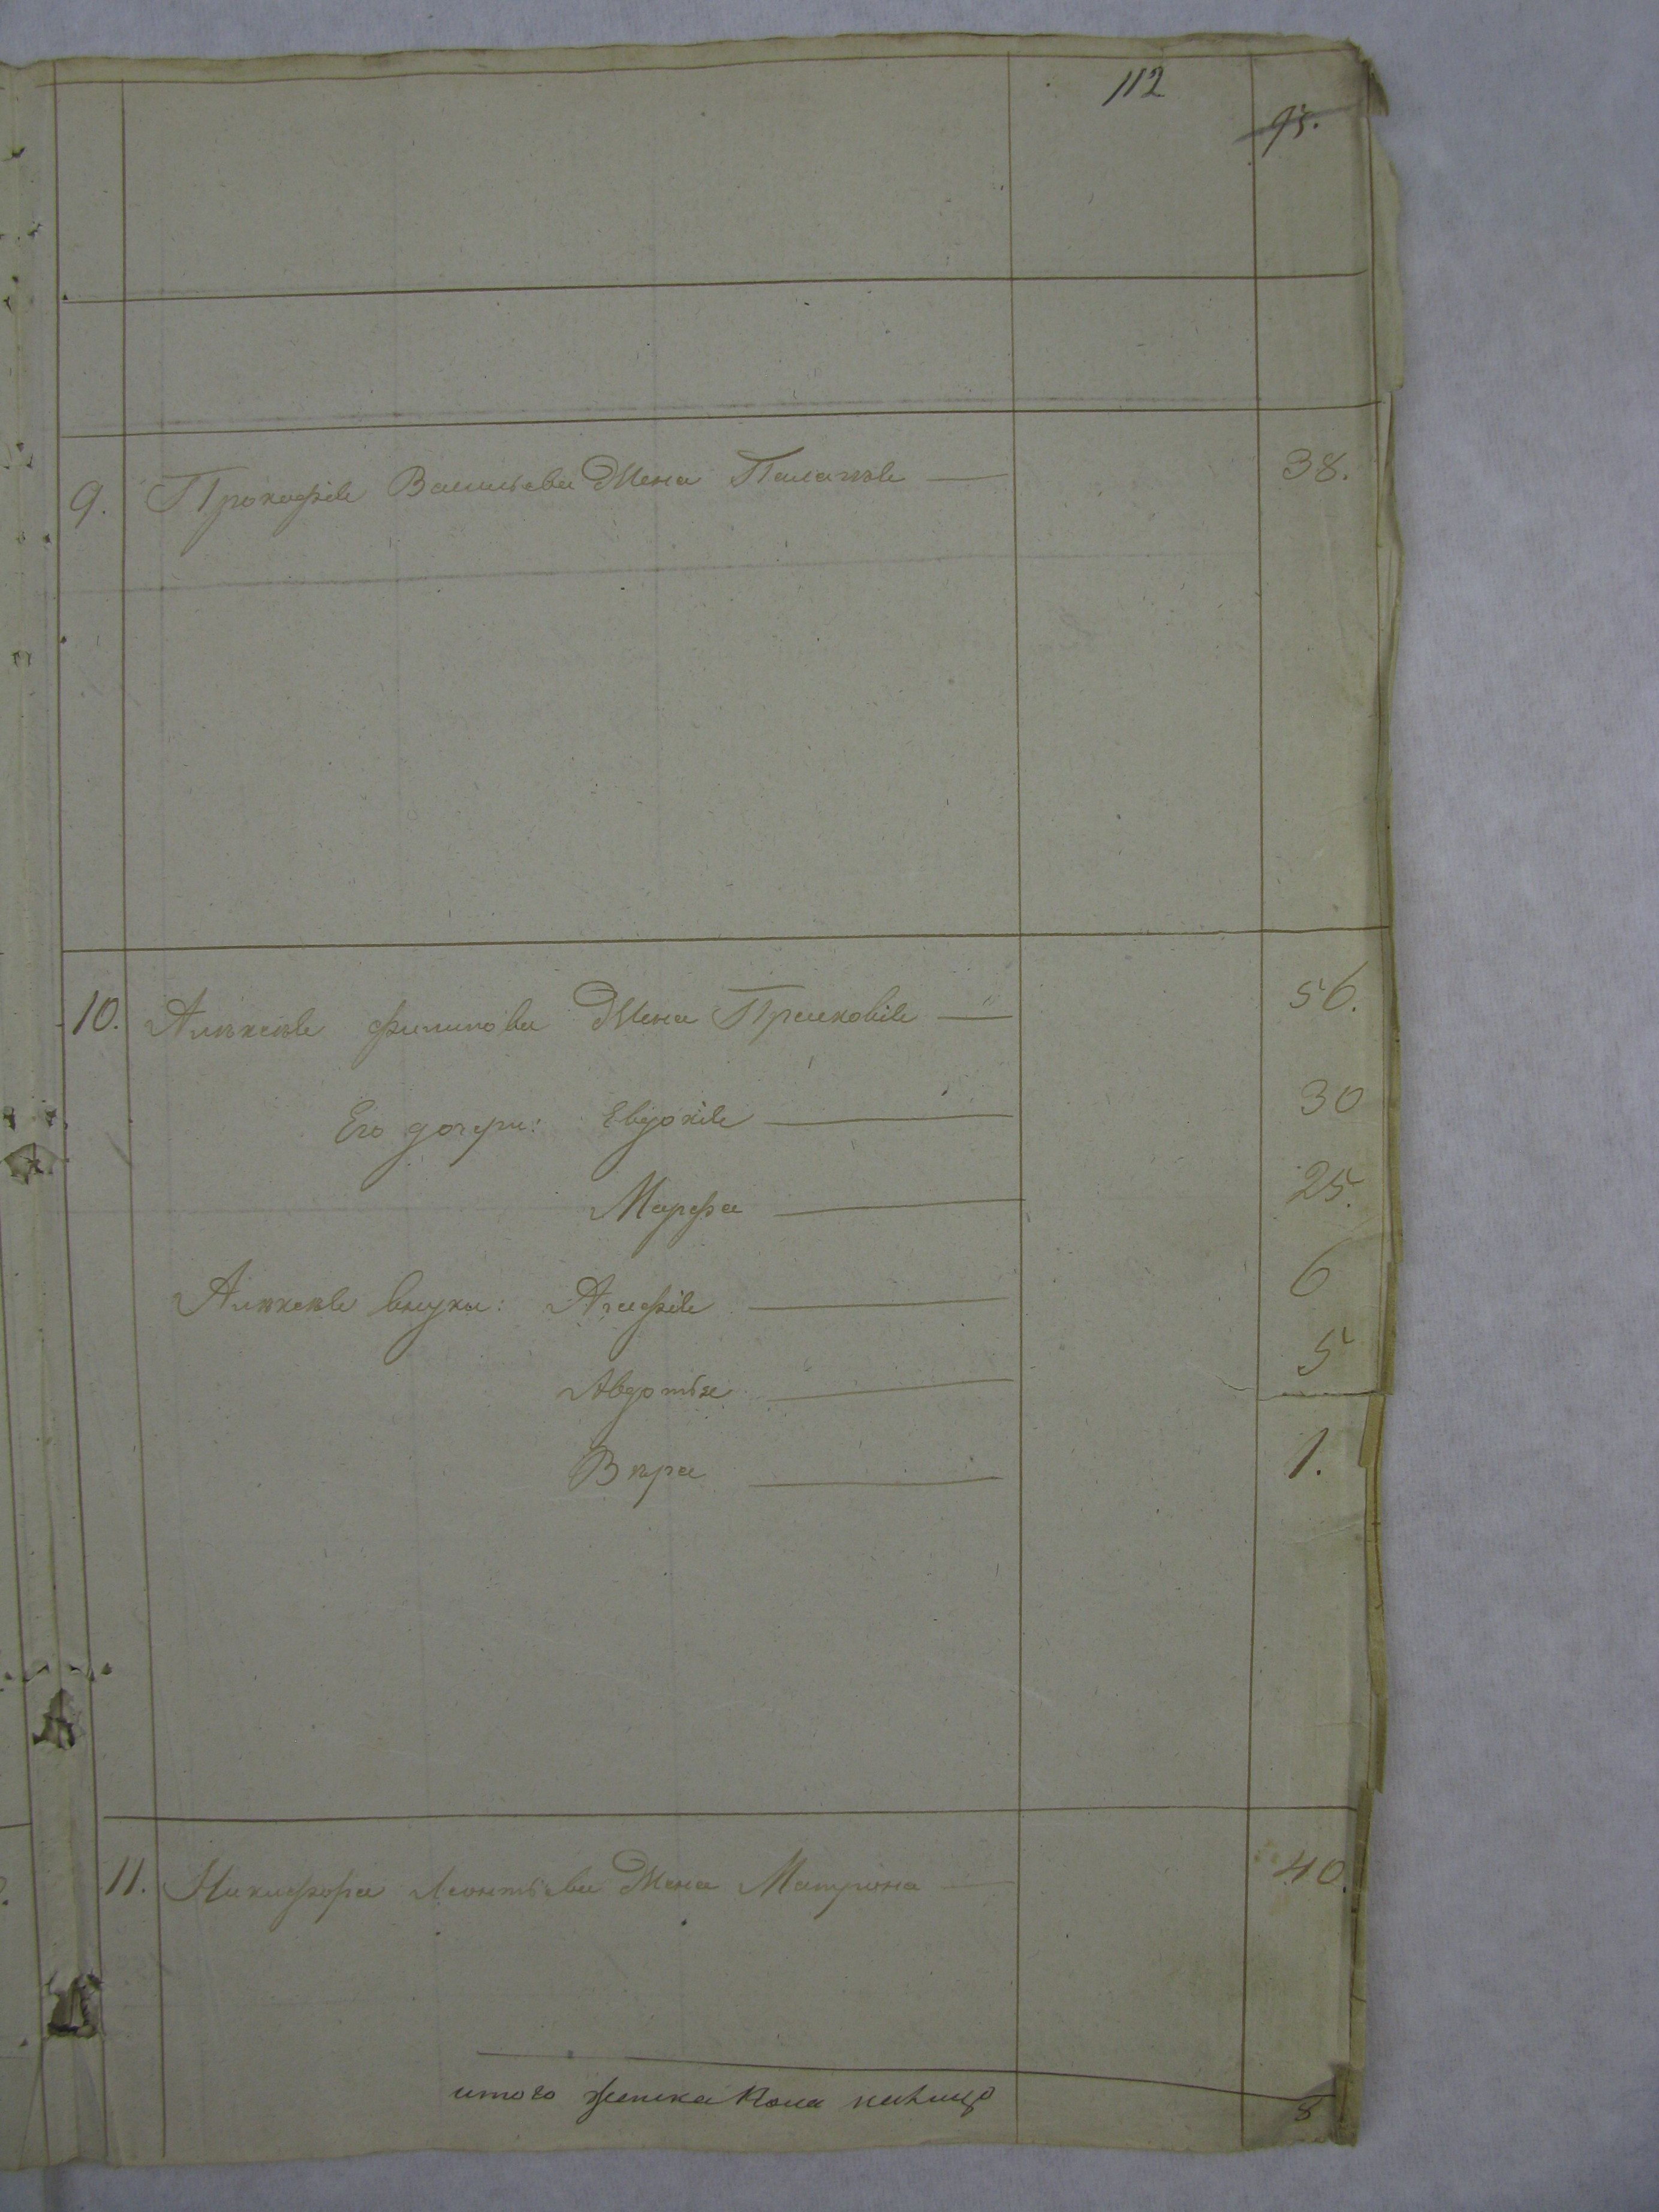 112
95.
9. Прокофія Васильева Жена Палагѣя — 38.
10. Алѣксѣя Филипова Жена Прасковія — 56.
Его дочери: Евдокія — 30
Марфа — 25.
Алѣксѣя внуки: Агафія — 6
Авдотья — 5
Вѣра — 1.
11. Никифора Леонтьева Жена Матрона — 40.
итого женска пола налицо 8